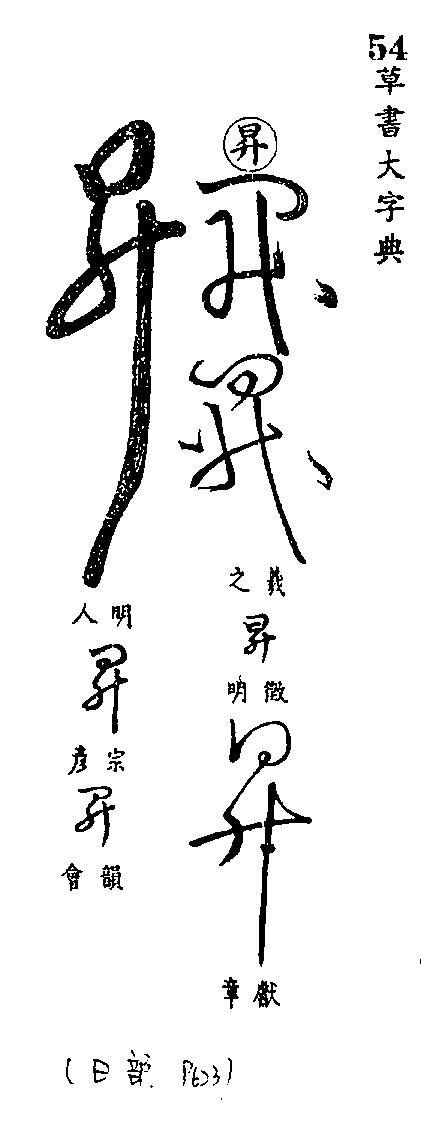 54
草書大字典
昇
昇
昇
羲之
昇
徵明
昇
獻章
昇
明人
昇
宗彥
昇
韻會
(日部 P623)